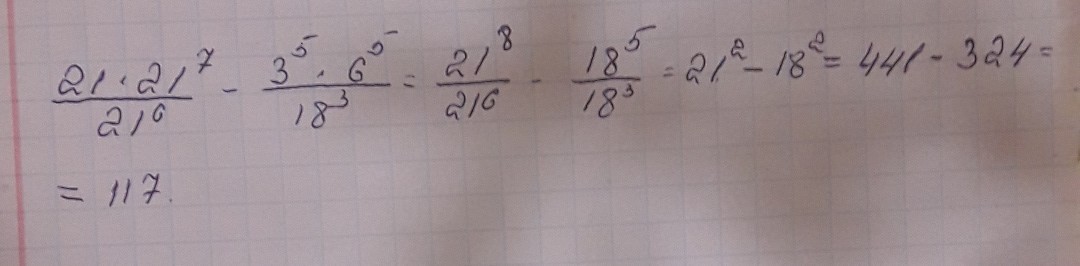 21·21⁷/21⁶ - 3⁵·6⁵/18³ = 21⁸/21⁶ - 18⁵/18³ = 21² - 18² = 441 - 324 =
= 117.